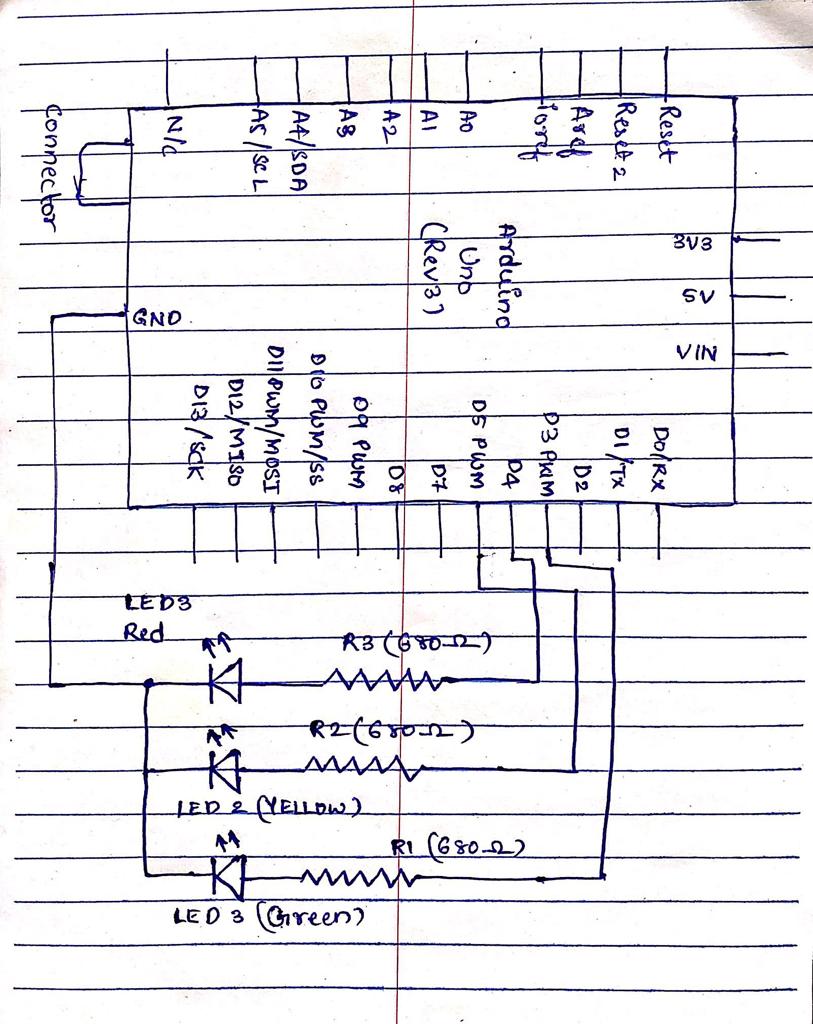 N/C
A5/SCL
A4/SDA
A3
A2
A1
A0
Ioref
Aref
Reset 2
Reset
Connector
Arduino
Uno
(Rev3)
3V3
5V
VIN
GND
D13/SCK
D12/MISO
D11PWM/MOSI
D10 PWM/SS
D9 PWM
D8
D7
D5 PWM
D4
D3 PWM
D2
D1/Tx
D0/RX
LED3
Red
R3 (680Ω)
R2 (680Ω)
LED 2 (YELLOW)
R1 (680Ω)
LED 3 (Green)